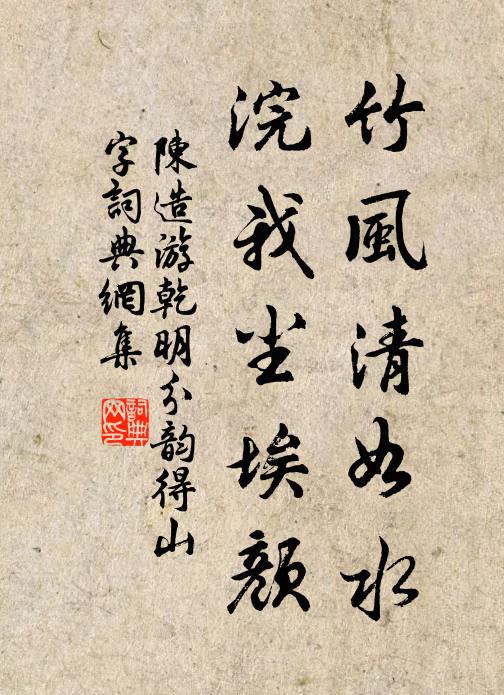 竹風清如水
浣我尘埃顔
陳造游乾明分韵得山
字詞典網集
詞典
网印